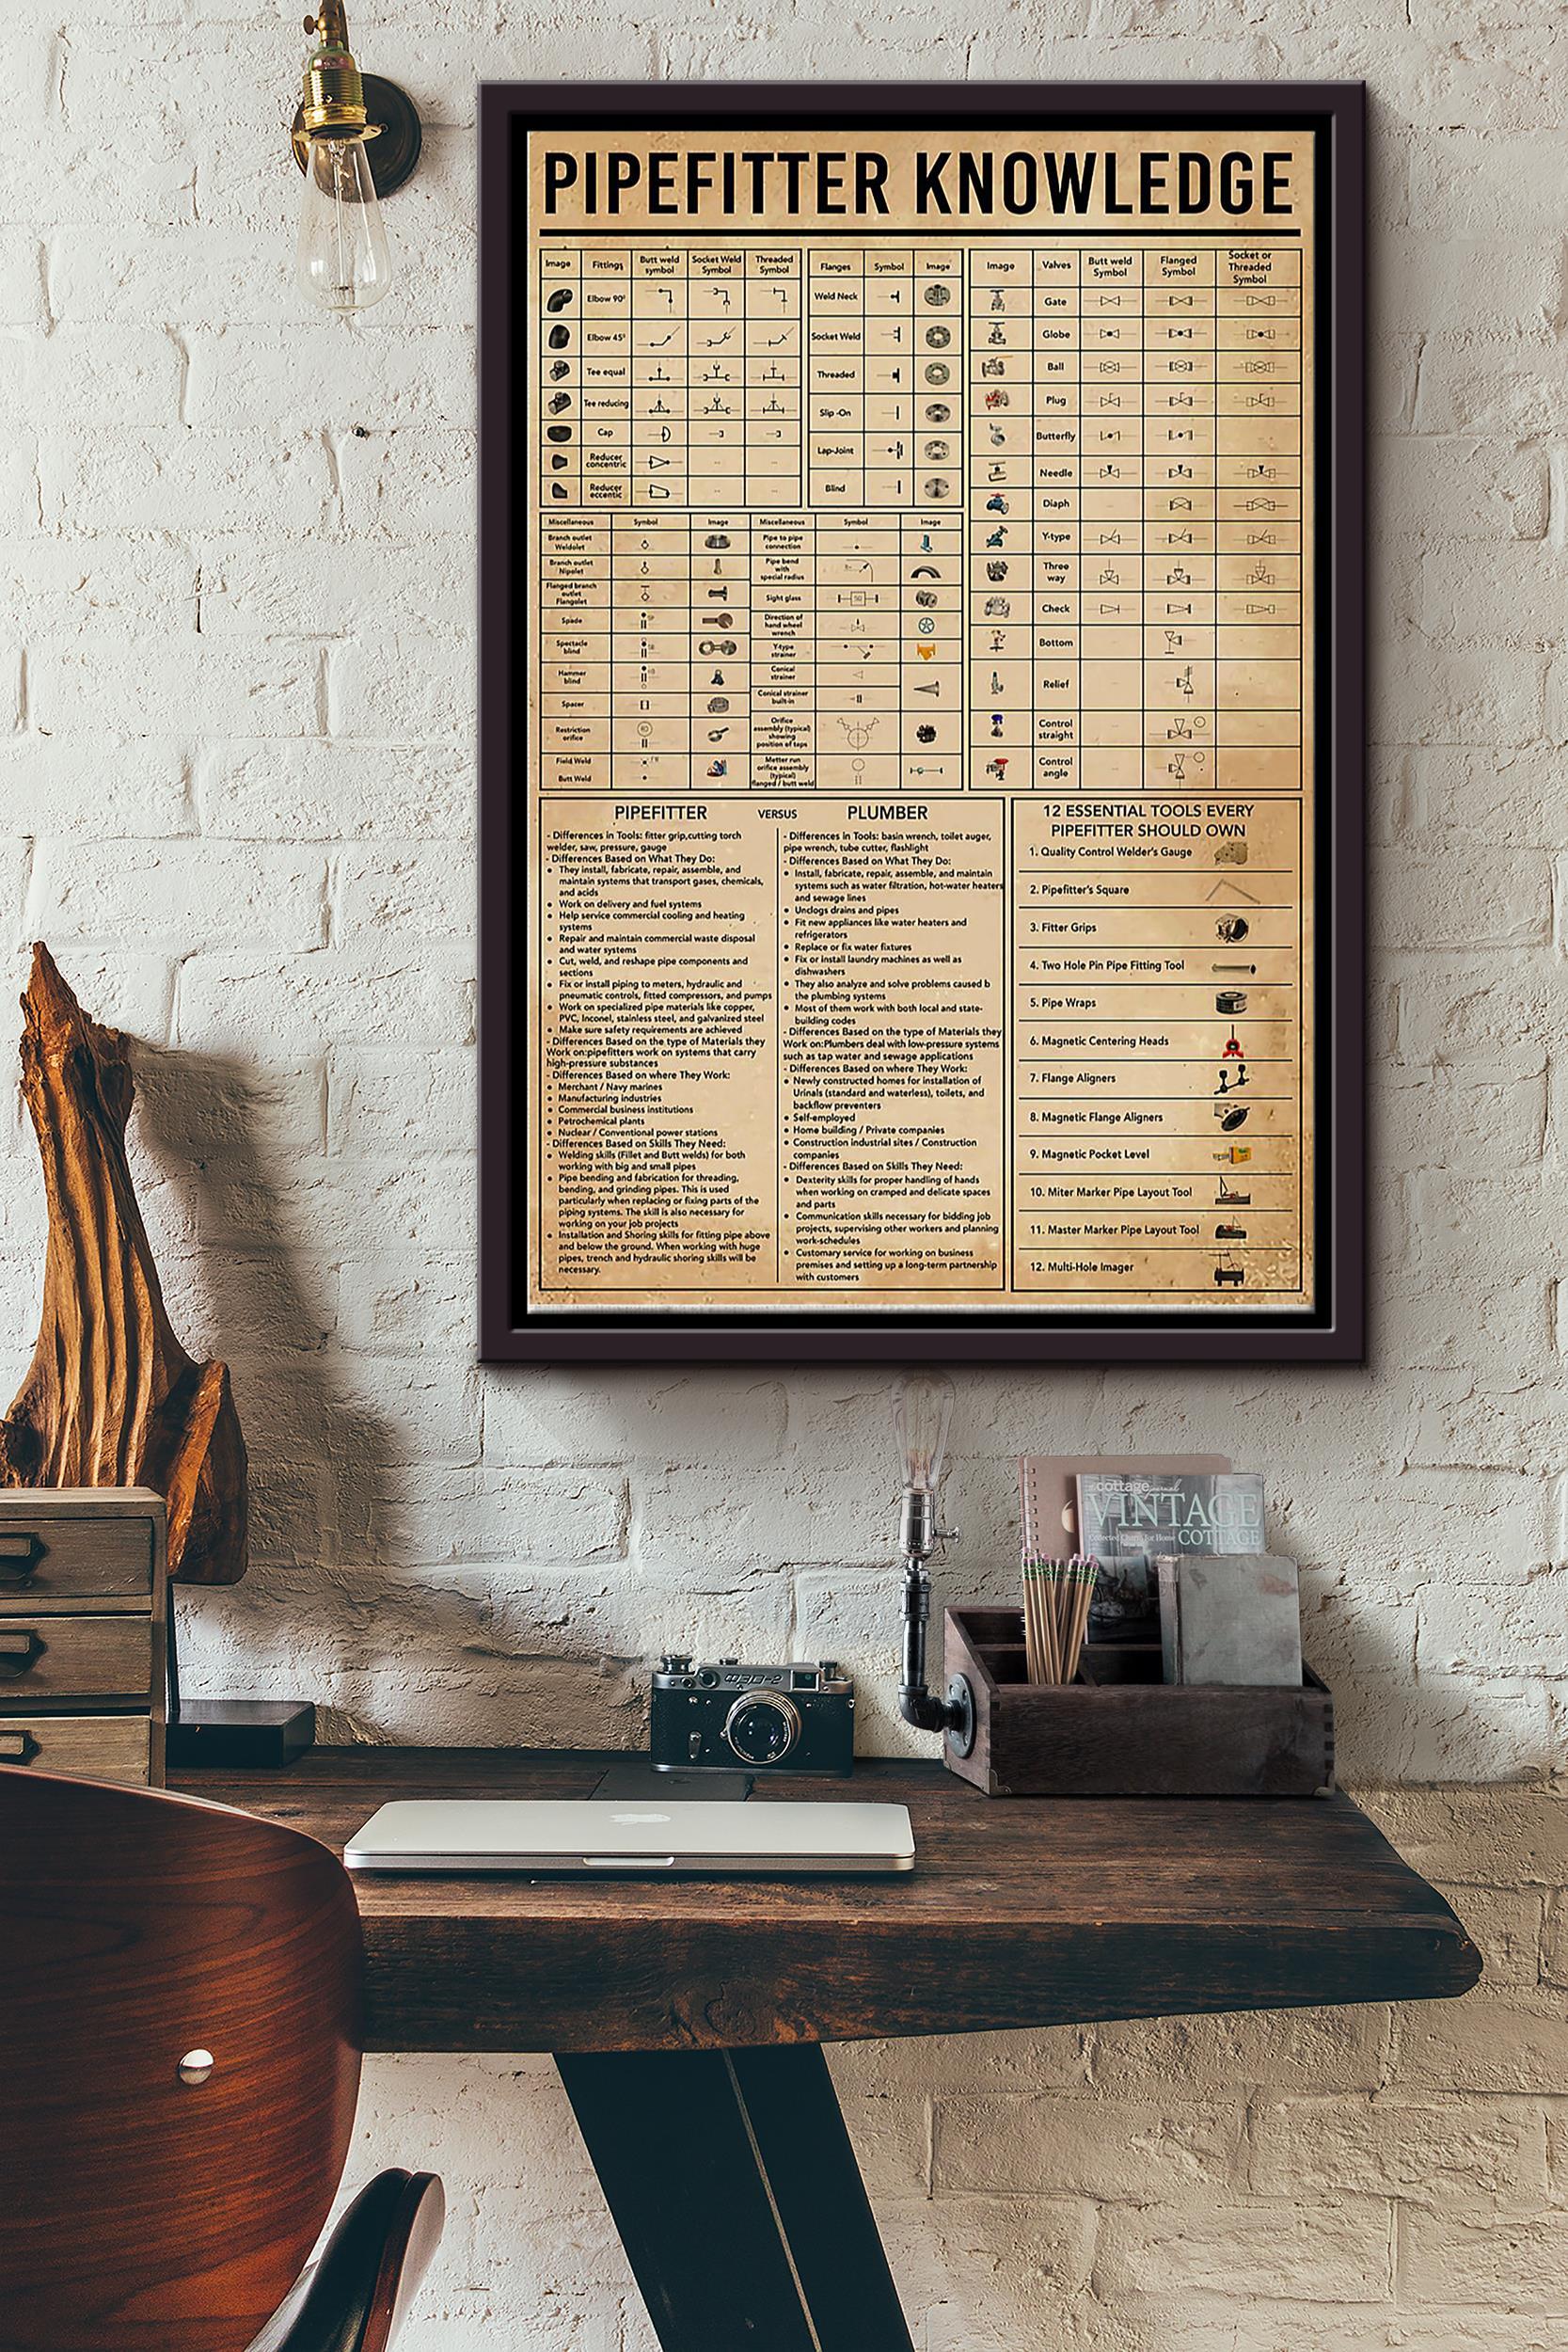 PIPEFITTER KNOWLEDGE
Image Fittings Butt weld symbol Socket Weld Symbol Threaded Symbol
Elbow 90°
Elbow 45°
Tee equal
Tee reducing
Cap
Reducer concentric
Reducer eccentic
Flanges Symbol Image
Weld Neck
Socket Weld
Threaded
Slip -On
Lap-Joint
Blind
Image Valves Butt weld Symbol Flanged Symbol Socket or Threaded Symbol
Gate
Globe
Ball
Plug
Butterfly
Needle
Diaph
Y-type
Three way
Check
Bottom
Relief
Control straight
Control angle
Miscellaneous Symbol Image
Branch outlet Weldolet
Branch outlet Nipolet
Flanged branch outlet Flangolet
Spade
Spectacle blind
Hammer blind
Spacer
Restriction orifice
Field Weld
Butt Weld
Miscellaneous Symbol Image
Pipe to pipe connection
Pipe bend with special radius
Sight glass
SG
Direction of hand wheel wrench
Y-type strainer
Conical strainer
Conical strainer built-in
Orifice assembly (typical) showing position of taps
Metter run orifice assembly (typical) flanged / butt weld
PIPEFITTER VERSUS PLUMBER
- Differences in Tools: fitter grip,cutting torch
welder, saw, pressure, gauge
- Differences Based on What They Do:
• They install, fabricate, repair, assemble, and
maintain systems that transport gases, chemicals,
and acids
• Work on delivery and fuel systems
• Help service commercial cooling and heating
systems
• Repair and maintain commercial waste disposal
and water systems
• Cut, weld, and reshape pipe components and
sections
• Fix or install piping to meters, hydraulic and
pneumatic controls, fitted compressors, and pumps
• Work on specialized pipe materials like copper,
PVC, Inconel, stainless steel, and galvanized steel
• Make sure safety requirements are achieved
- Differences Based on the type of Materials they
Work on:pipefitters work on systems that carry
high-pressure substances
- Differences Based on where They Work:
• Merchant / Navy marines
• Manufacturing industries
• Commercial business institutions
• Petrochemical plants
• Nuclear / Conventional power stations
- Differences Based on Skills They Need:
• Welding skills (Fillet and Butt welds) for both
working with big and small pipes
• Pipe bending and fabrication for threading,
bending, and grinding pipes. This is used
particularly when replacing or fixing parts of the
piping systems. The skill is also necessary for
working on your job projects
• Installation and Shoring skills for fitting pipe above
and below the ground. When working with huge
pipes, trench and hydraulic shoring skills will be
necessary.
- Differences in Tools: basin wrench, toilet auger,
pipe wrench, tube cutter, flashlight
- Differences Based on What They Do:
• Install, fabricate, repair, assemble, and maintain
systems such as water filtration, hot-water heaters
and sewage lines
• Unclogs drains and pipes
• Fit new appliances like water heaters and
refrigerators
• Replace or fix water fixtures
• Fix or install laundry machines as well as
dishwashers
• They also analyze and solve problems caused b
the plumbing systems
• Most of them work with both local and state-
building codes
- Differences Based on the type of Materials they
Work on:Plumbers deal with low-pressure systems
such as tap water and sewage applications
- Differences Based on where They Work:
• Newly constructed homes for installation of
Urinals (standard and waterless), toilets, and
backflow preventers
• Self-employed
• Home building / Private companies
• Construction industrial sites / Construction
companies
- Differences Based on Skills They Need:
• Dexterity skills for proper handling of hands
when working on cramped and delicate spaces
and parts
• Communication skills necessary for bidding job
projects, supervising other workers and planning
work-schedules
• Customary service for working on business
premises and setting up a long-term partnership
with customers
12 ESSENTIAL TOOLS EVERY
PIPEFITTER SHOULD OWN
1. Quality Control Welder's Gauge
2. Pipefitter's Square
3. Fitter Grips
4. Two Hole Pin Pipe Fitting Tool
5. Pipe Wraps
6. Magnetic Centering Heads
7. Flange Aligners
8. Magnetic Flange Aligners
9. Magnetic Pocket Level
10. Miter Marker Pipe Layout Tool
11. Master Marker Pipe Layout Tool
12. Multi-Hole Imager
cottage journal
VINTAGE
COTTAGE
ФЭД-2